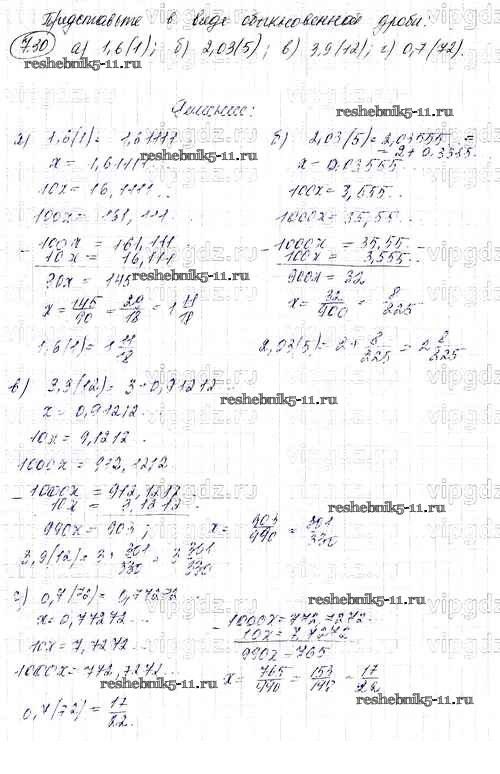 Представьте в виде обыкновенной дроби:
7.30 а) 1,6(1); б) 2,03(5); в) 3,9(12); г) 0,7(72).
reshebnik5-11.ru
reshebnik5-11.ru
Решение:
а) 1,6(1) = 1,61111
x = 1,61111..
10x = 16,1111...
100x = 161,111...
- 100x = 161,111
10x = 16,111
90x = 145
x = 145/90 = 29/18 = 1 11/18
1,6(1) = 1 11/18
б) 2,03(5) = 2,03555.. =
= 2 + 0,3355..
x = 0,03555...
100x = 3,555...
1000x = 35,55...
- 1000x = 35,55...
100x = 3,555...
900x = 32
x = 32/900 = 8/225
2,03(5) = 2 + 8/225 = 2 8/225
в) 3,9(12) = 3 + 0,91212...
reshebnik5-11.ru
x = 0,91212...
10x = 9,1212...
1000x = 912,1212
- 1000x = 912,1212...
10x = 9,1212...
reshebnik5-11.ru
990x = 903;
x = 903/990 = 301/330
3,9(12) = 3 + 301/330 = 3 301/330
г) 0,7(72) = 0,77272...
x = 0,77272...
10x = 7,7272...
1000x = 772,7272...
- 1000x = 772,7272...
10x = 7,7272...
990x = 765
reshebnik5-11.ru
x = 765/990 = 153/198 = 17/22
reshebnik5-11.ru
0,7(72) = 17/22.
reshebnik5-11.ru